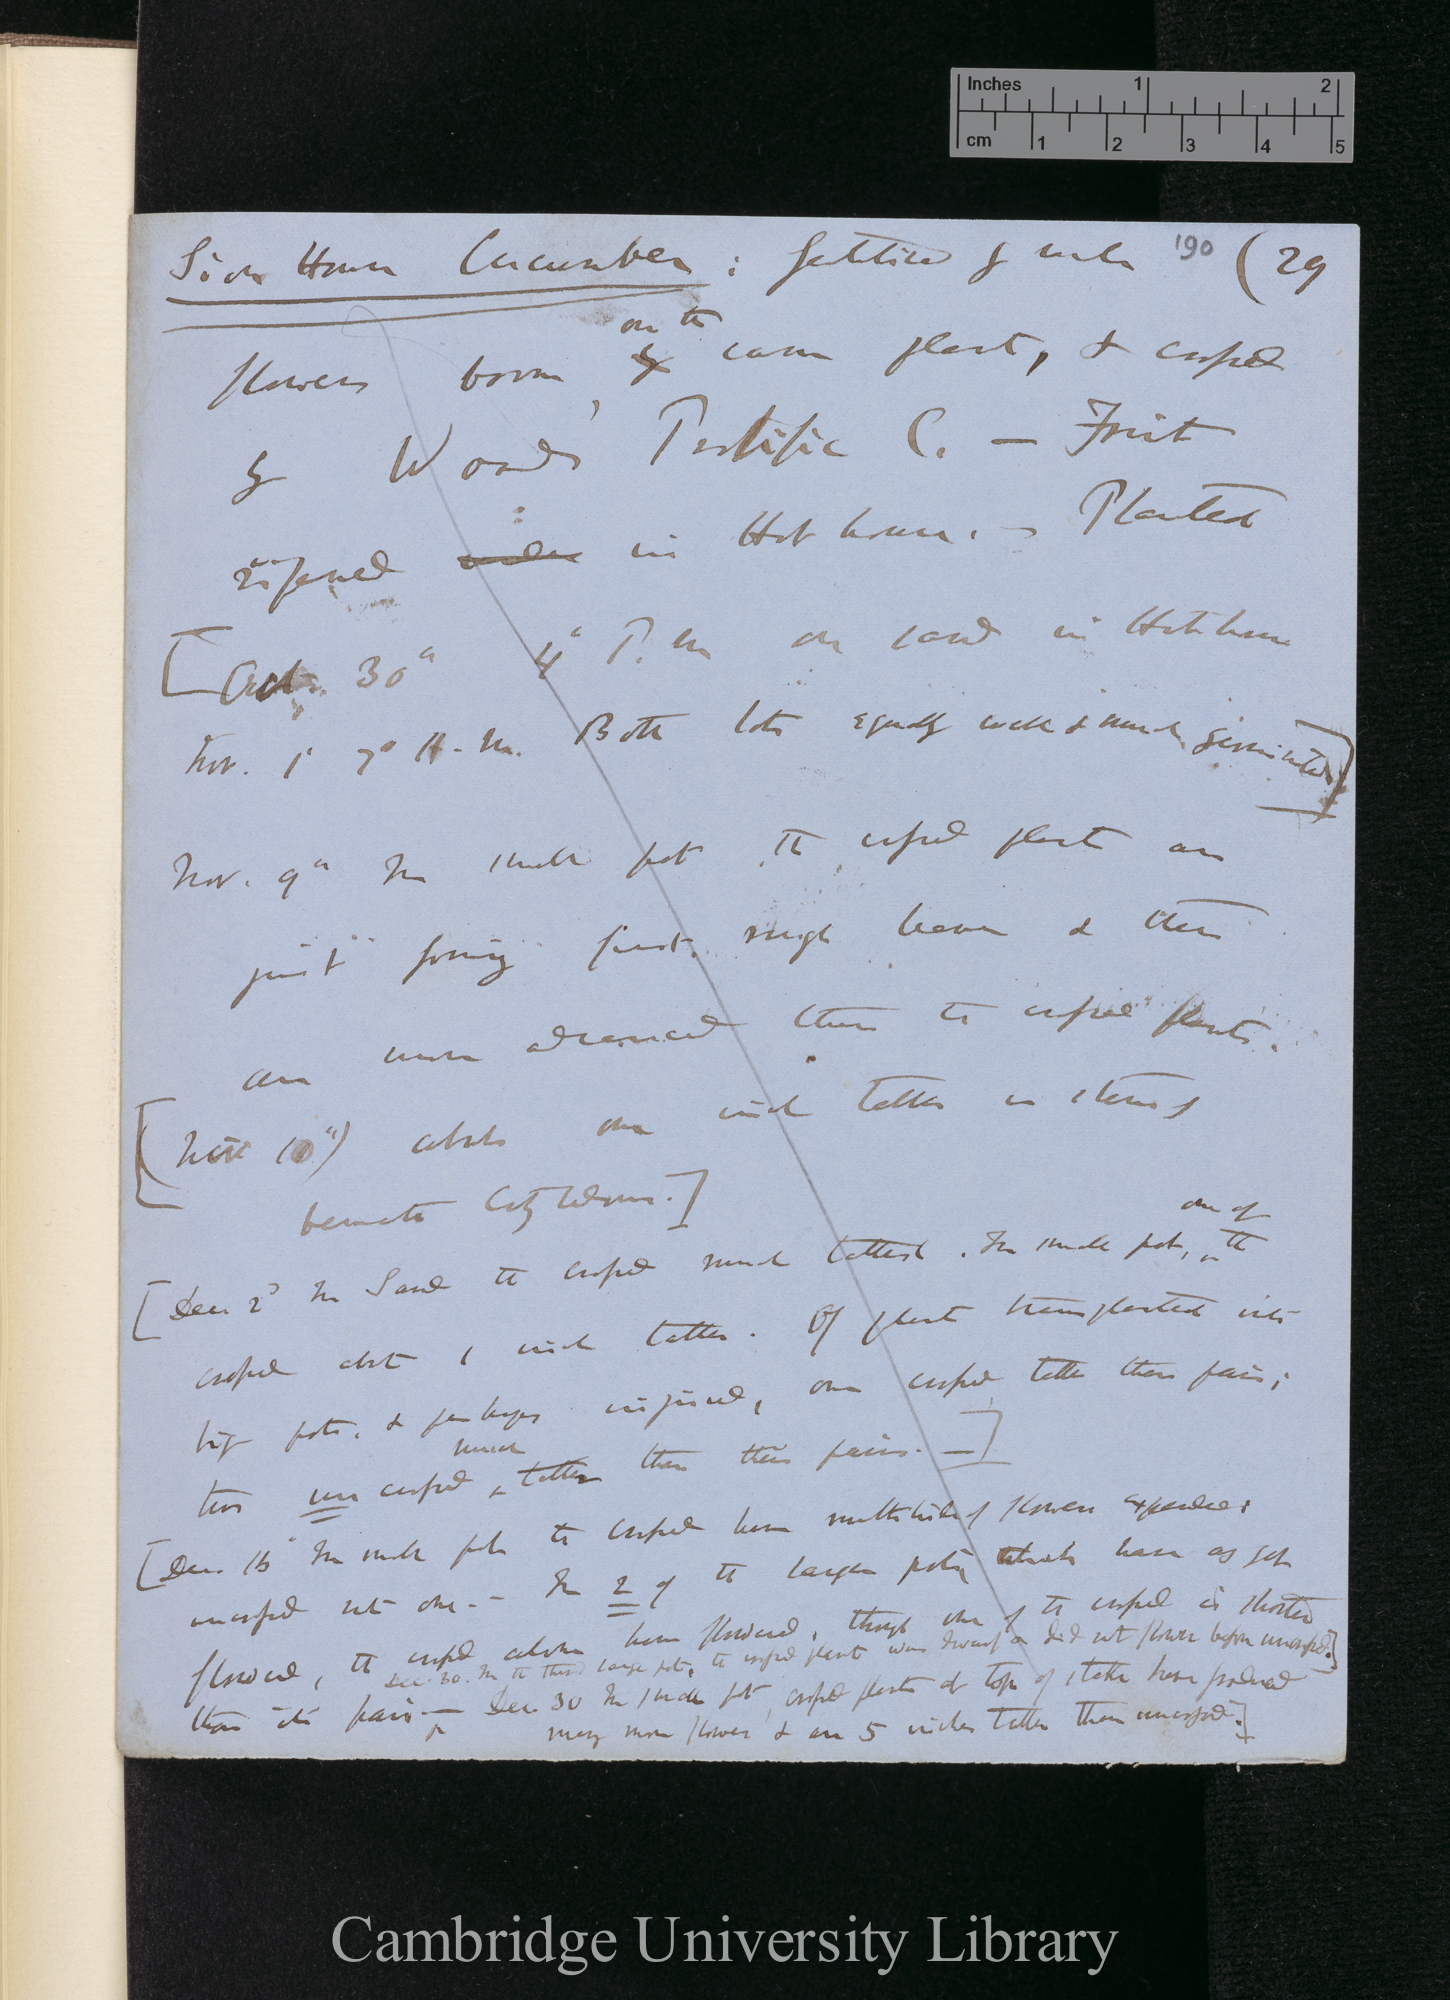 Inches 1 2
cm 1 2 3 4 5
Sion House Cucumber : fertilised by male 190 (29
flowers borne by on the same plant, & crossed
by Woods' Prolific C. — Fruit
ripened in Hot house. — Planted
[Oct. 30th 4h P.m on sand in Hot house
Nov. 1st 7° A.m. Both lots equally well & much germinated]
Nov. 9th In small pot the crossed plants are
just forming first rough leaves & these
are more advanced than the crossed plants.
[Nov 10th) about one inch taller in stems of
beneath Cotyledons.]
[Dec 2d In Sand the crossed much tallest. In small pot, one of the
crossed about 1 inch taller. Of plants transplanted into
big pots, & perhaps injured, one crossed taller than pair;
two uncrossed much taller than their pairs. —]
[Dec. 15th In small pot the crossed have multitude of flowers expanded:
uncrossed not one. — In 2 of the larger pots, which have as yet
flowered, the crossed alone have flowered, though one of the crossed is shorter
Dec. 30. In the third large pot, the crossed plant was dwarf & did not flower before uncrossed.]
than its pair — Dec 30 In small pot, crossed plants at top of stake have produced
many more flowers & are 5 inches taller than uncrossed.]
Cambridge University Library